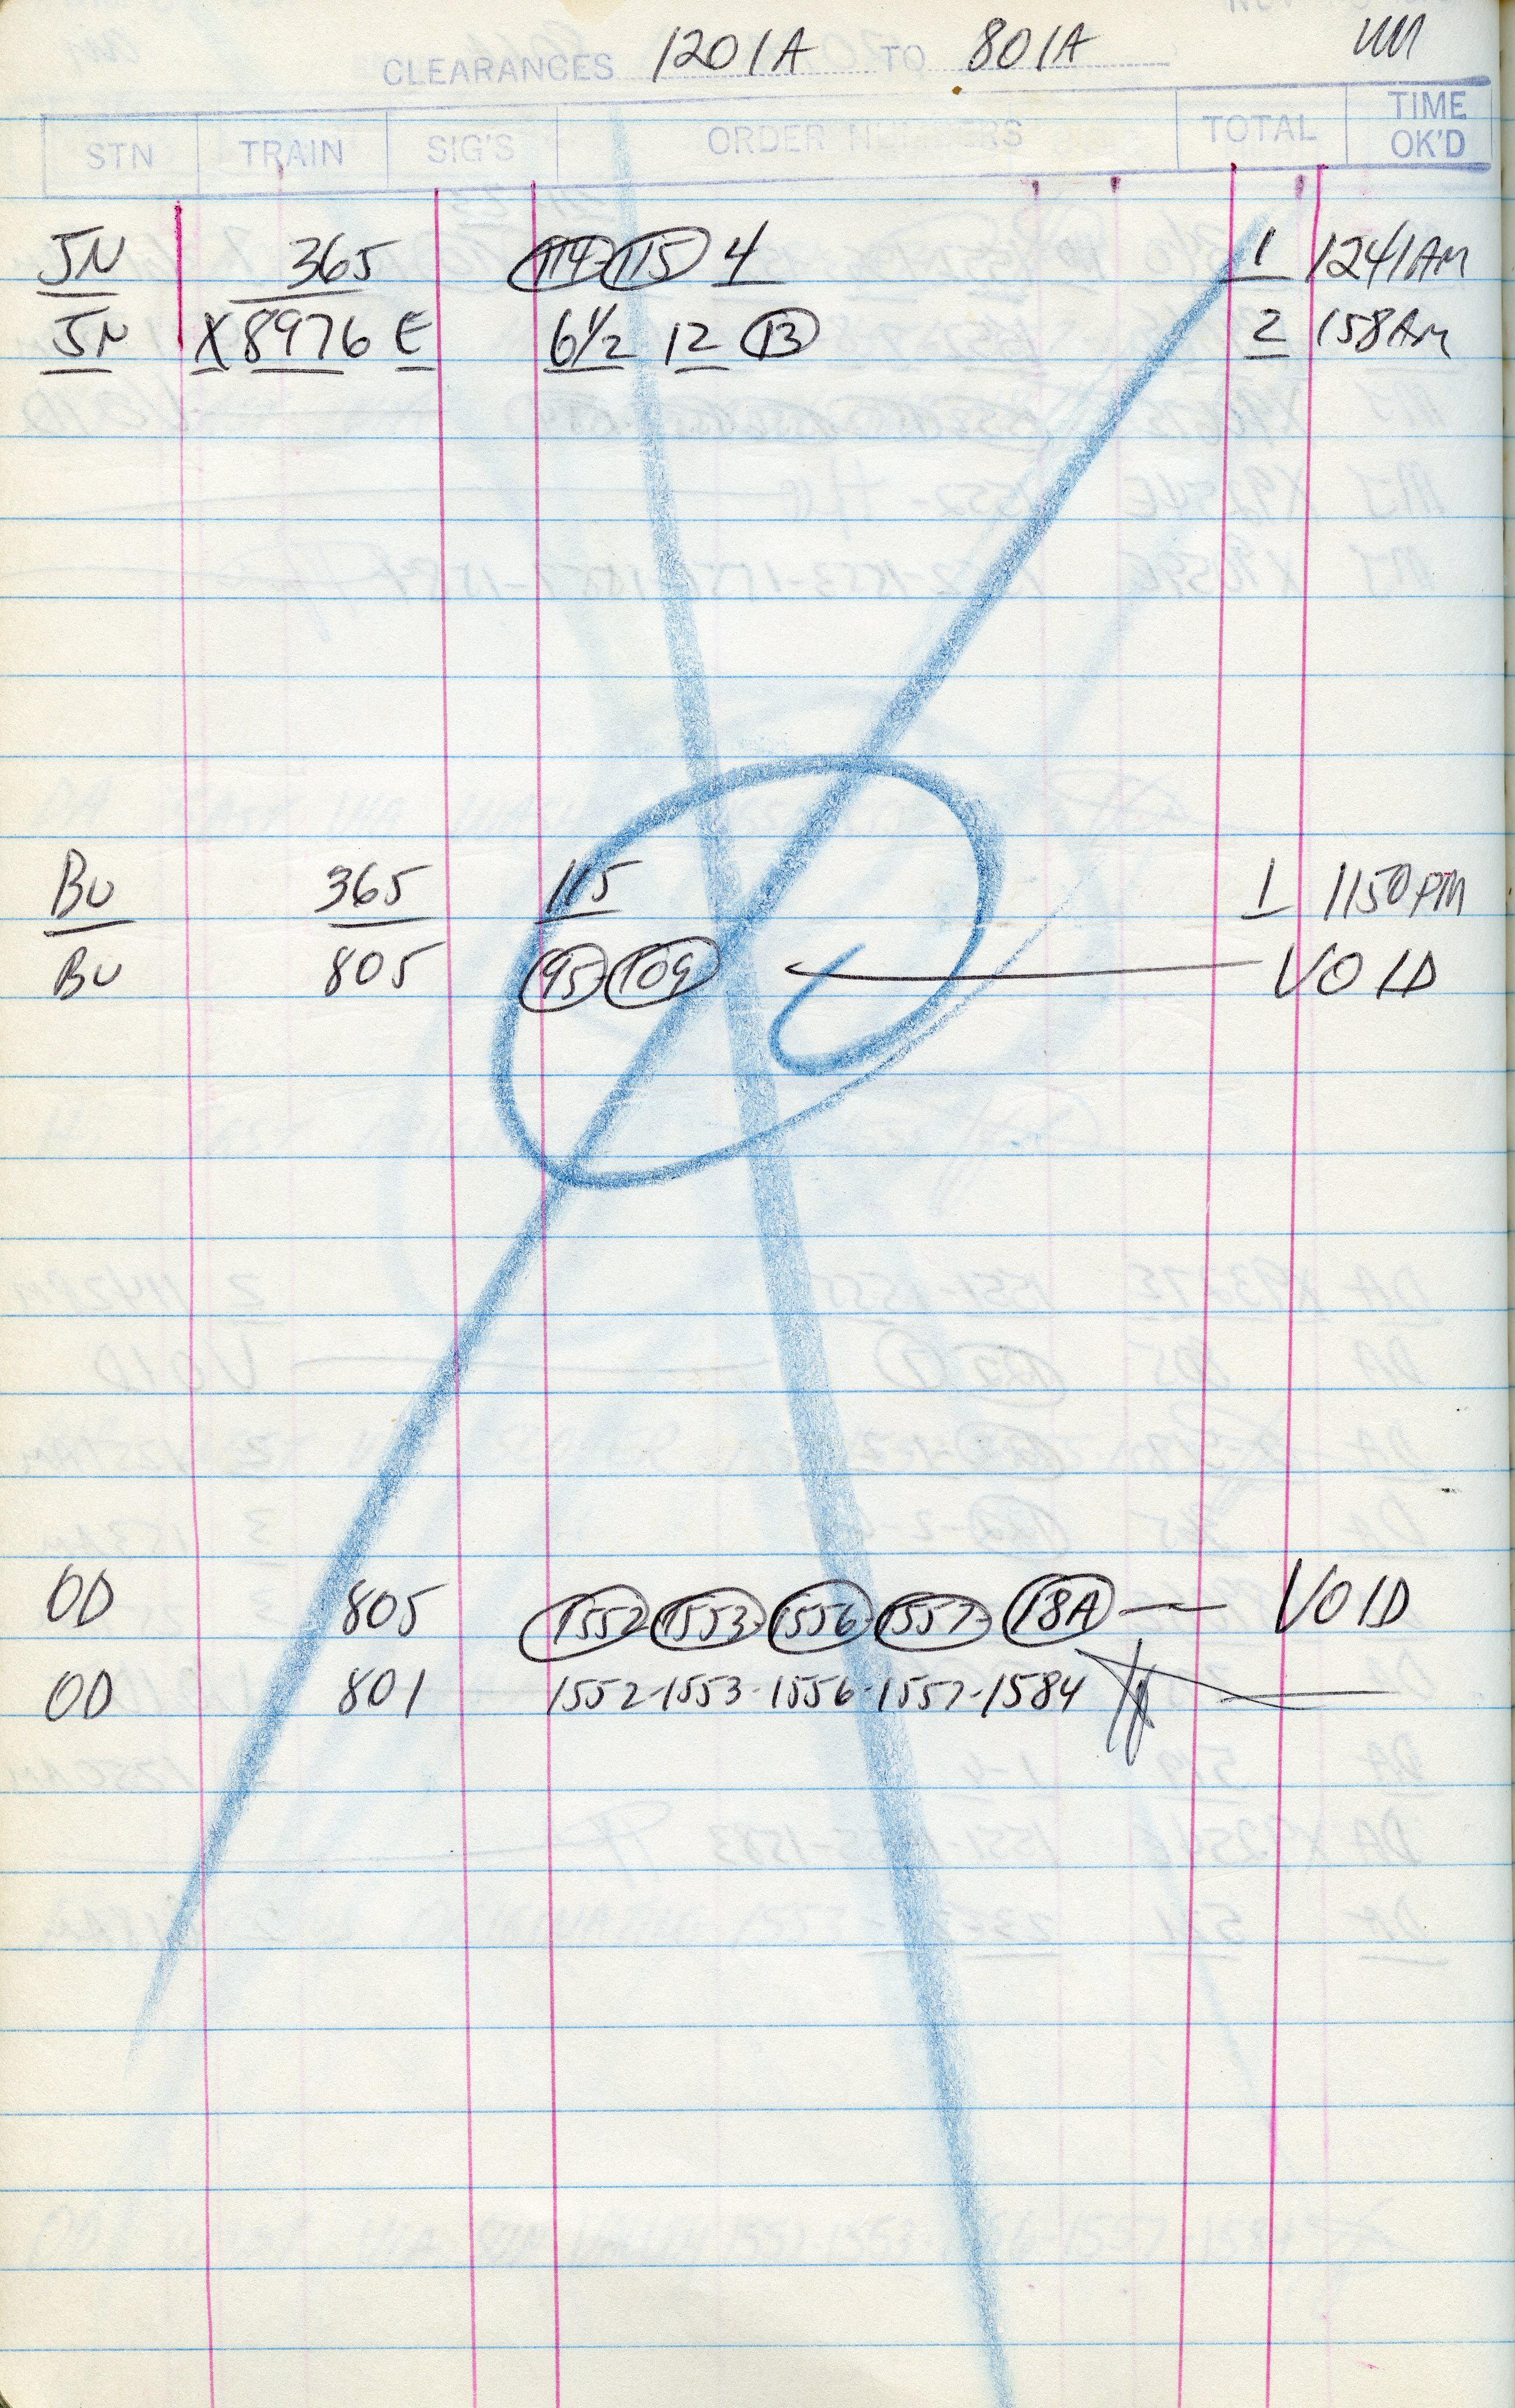 CLEARANCES 1201A TO 801A
STN TRAIN SIG'S ORDER NUMBERS TOTAL TIME OK'D
JN 365 114 115 4 1 1241AM
JN X8976 E 6½ 12 13 2 158AM
BU 365 115 1 1150PM
BU 805 95 109 VOID
OD 805 1552 1553 1556 1557 18A — VOID
OD 801 1552-1553-1556-1557-1584